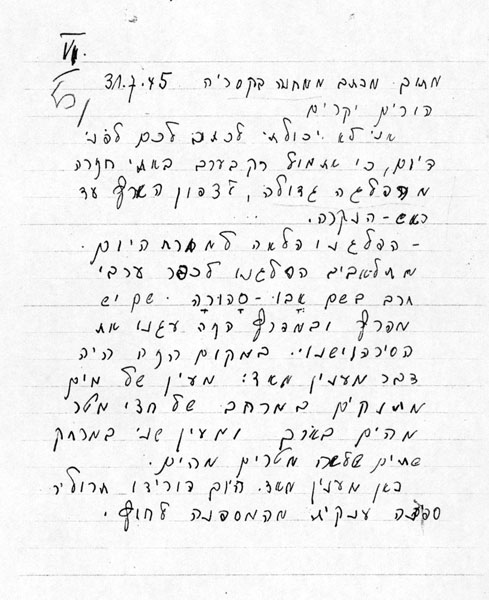 VI.
מתוך מכתב ממחנה בקסריה 31.7.45
הורים יקרים
אני לא יכולתי לכתוב לכם לפני
היום, כי אתמול רק בערב באתי חזרה
מהפלגה גדולה, לצפון הארץ עד
ראש-הנקרה.
- הפלגנו הלאה למזרח היום.
מתל אביב הפלגנו לכפר ערבי
חרב בשם אבו-סהורה. שם יש
מפרץ ובמפרץ הזה עגנו את
הסירה. במקום הזה היה
דבר מענין מאד: מעין של מים
מתוקים במרחב של חצי מטר
מהים בארך ומעין שני במרחק
שתים שלשה מטרים מהים.
כאן מענין מאד. היום הורידו
ספינה ענקית מהמספנה לחוף.